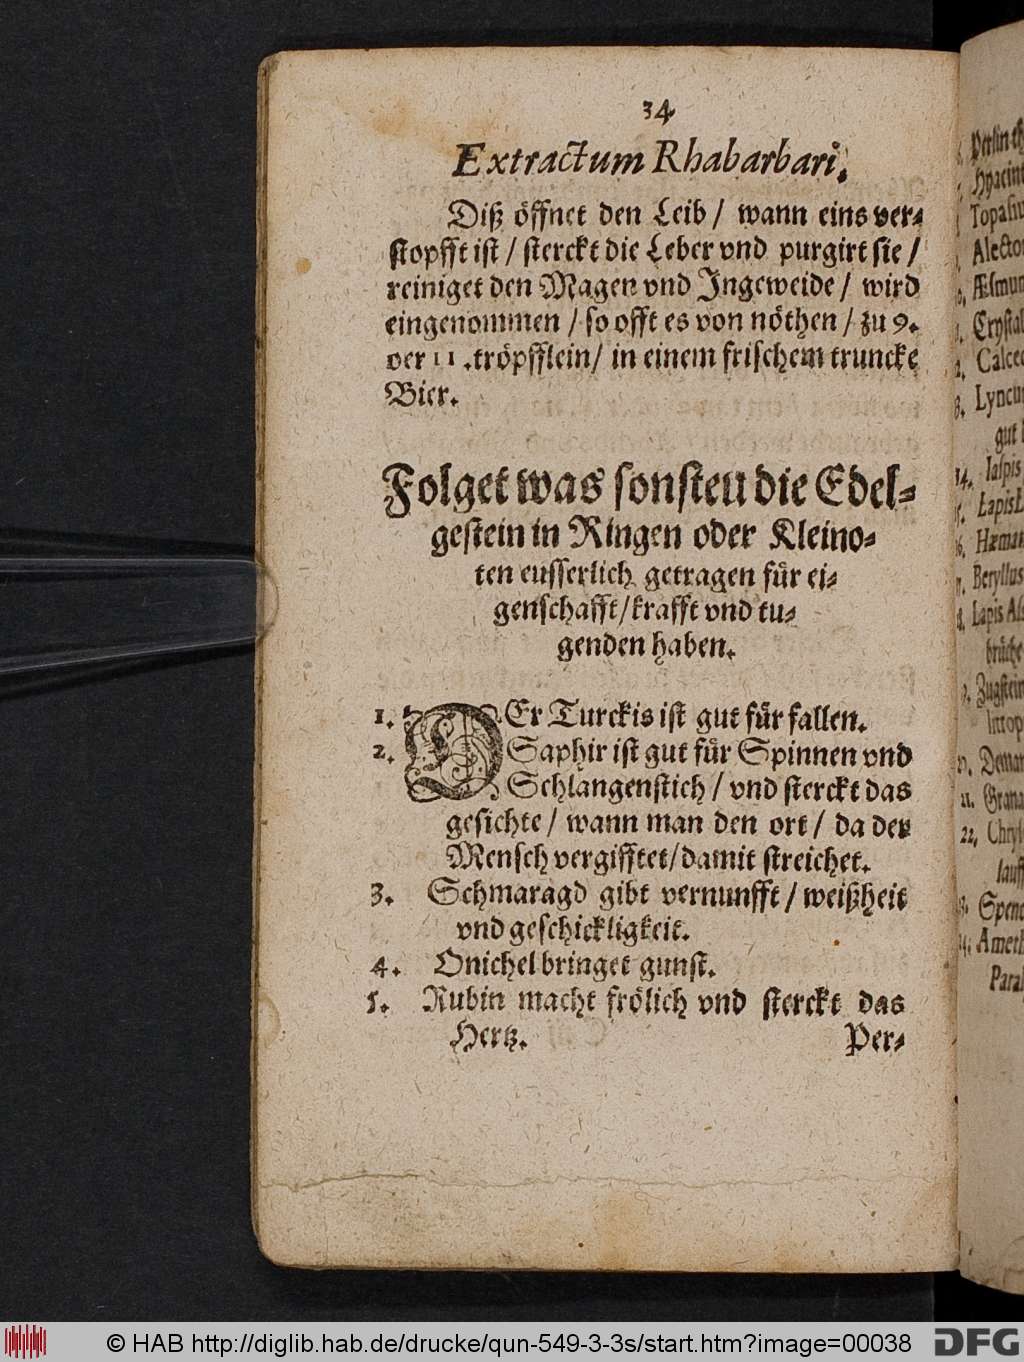 34
Extractum Rhabarbari.
Diß öffnet den Leib / wann eins ver-
stopfft ist / sterckt die Leber vnd purgirt sie /
reiniget den Magen vnd Ingeweide / wird
eingenommen / so offt es von nöthen / zu 9.
oer 11 .tröpfflein / in einem frischem truncke
Bier.
Folget was sonsten die Edel-
gestein in Ringen oder Kleino-
ten eusserlich getragen für ei-
genschafft / krafft vnd tu-
genden haben.
1. DEr Turckis ist gut für fallen.
2. Saphir ist gut für Spinnen vnd
Schlangenstich / vnd sterckt das
gesichte / wann man den ort / da der
Mensch vergifftet / damit streichet.
3. Schmaragd gibt vernunfft / weißheit
vnd geschickligkeit.
4. Onichel bringet gunst.
5. Rubin macht frölich vnd sterckt das
Hertz. Per-
Topasiu
Alecto
Crystal
Lyncu
gut
14. Iaspis
Lapis
Hæmat
Beryllus
Lapis
brüche
Zugstein
Demant
Grana
22. Chrys
lauff
Ameth
Para
© HAB http://diglib.hab.de/drucke/qun-549-3-3s/start.htm?image=00038
DFG